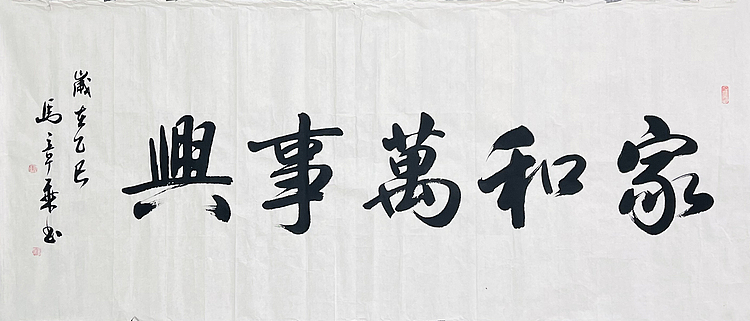 家和萬事興
歲在乙巳
馬
書